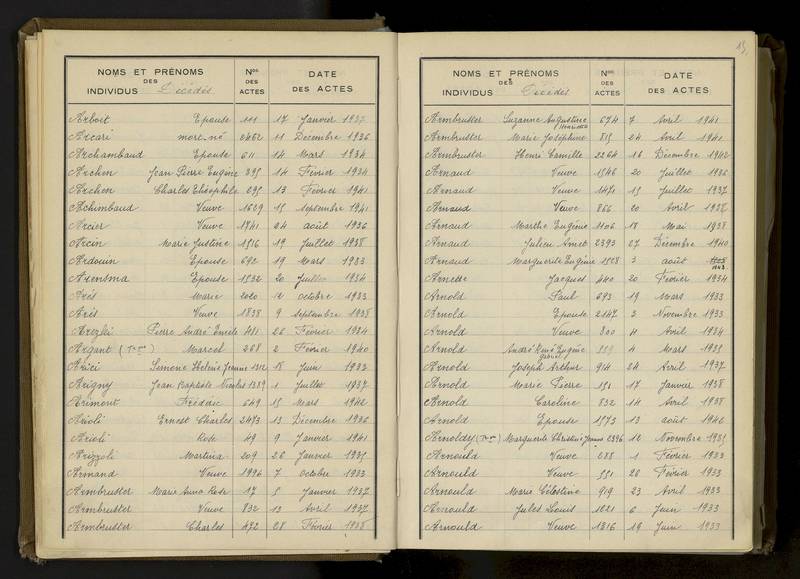 NOMS ET PRÉNOMS DES INDIVIDUS Décédés
Nos DES ACTES
DATE DES ACTES
Arboit Epouse 111 17 Janvier 1937
Arcari mort-né 2462 11 Décembre 1936
Archambaud Epouse 611 14 Mars 1934
Archen Jean Pierre Eugène 395 14 Février 1934
Archen Charles Théophile 295 13 Février 1941
Achimbaud Veuve 1609 15 Septembre 1941
Arcier Veuve 1741 24 août 1936
Arcin Marie Justine 1516 19 Juillet 1938
Ardouin Epouse 692 19 Mars 1933
Epouse 1532 20 Juillet 1934
Arès Marie 2020 12 octobre 1933
Arès Veuve 1838 9 septembre 1938
Pierre André Emile 481 26 Février 1934
Argant Marcel 268 2 Février 1940
Arici Simonie Helène Jeanne 1312 18 Juin 1933
Arigny Jean Baptiste Nicolas 1389 1 Juillet 1937
Arimont Frédéric 649 15 Mars 1942
Arioli Ernest Charles 2473 13 Décembre 1936
Arioli Rose 49 9 Janvier 1941
Arizzoli Martina 209 26 Janvier 1935
Armand Veuve 1996 7 octobre 1933
Armbruster Marie Anna Rose 17 5 Janvier 1937
Armbruster Veuve 832 13 Avril 1937
Armbruster Charles 472 28 Février 1938
15
NOMS ET PRÉNOMS DES INDIVIDUS Décédés
Nos DES ACTES
DATE DES ACTES
Armbruster Suzanne Augustine Henriette 674 7 Avril 1941
Armbruster Marie Joséphine 815 24 Avril 1941
Armbruster Henri Camille 2264 16 Décembre 1942
Arnaud Veuve 1546 20 Juillet 1936
Arnaud Veuve 1471 15 Juillet 1937
Arnaud Veuve 866 20 Avril 1938
Arnaud Marthe Eugénie 1106 18 Mai 1938
Arnaud Julien Aimé 2393 27 Décembre 1940
Arnaud Marguerite Eugénie 1508 3 août 1943
Arnette Jacques 440 20 Février 1934
Arnold Paul 693 19 Mars 1933
Arnold Epouse 2147 3 Novembre 1933
Arnold Veuve 800 4 Avril 1934
Arnold André René Eugène Gabriel 559 4 Mars 1935
Arnold Joseph Arthur 914 24 Avril 1937
Arnold Marie Pierre 151 17 Janvier 1938
Arnold Caroline 832 14 Avril 1938
Arnold Epouse 1573 13 août 1940
Arnoldy Marguerite Christine Jeanne 2396 12 Novembre 1935
Arnould Veuve 288 1 Février 1933
Arnould Veuve 551 28 Février 1933
Arnould Marie Célestine 919 23 Avril 1933
Arnould Jules Louis 1221 6 Juin 1933
Arnould Veuve 1316 19 Juin 1933